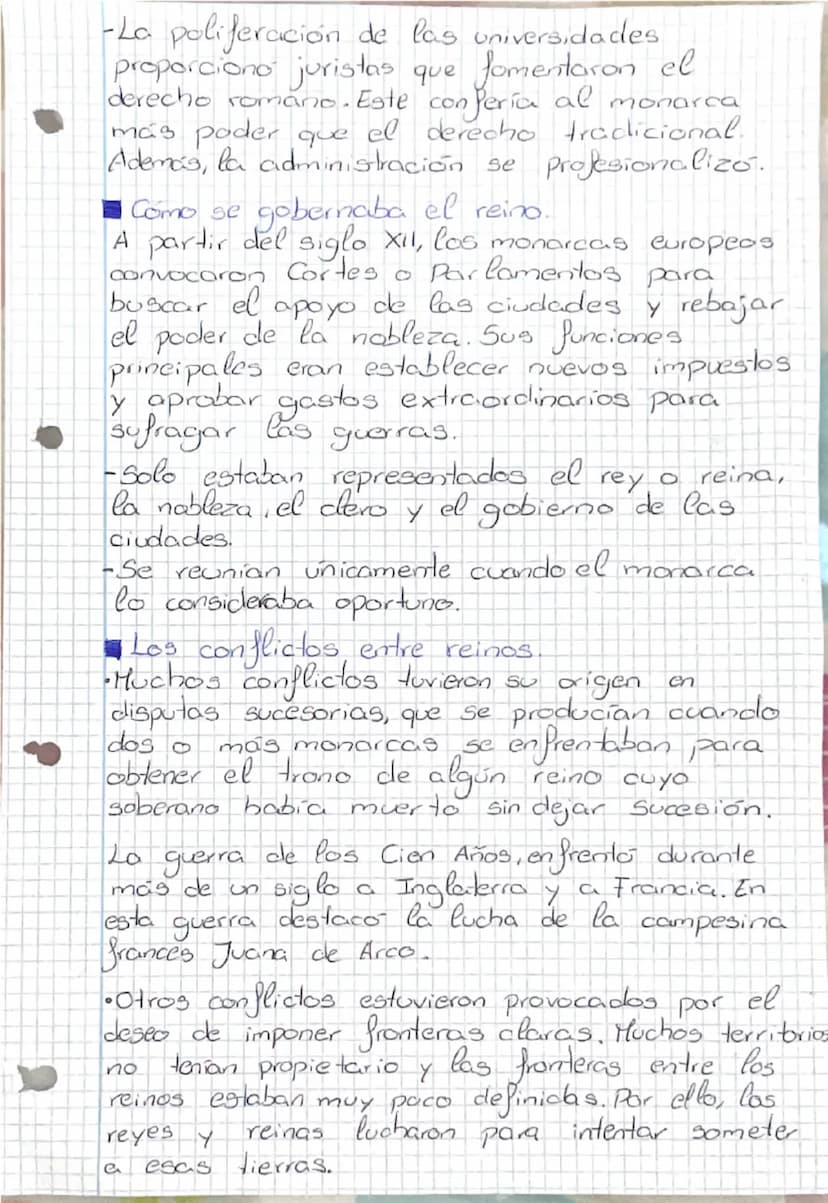 -La poliferación de las universidades
proporcionó juristas que fomentaron el
derecho romano. Este confería al monarca
más poder que el derecho tradicional.
Además, la administración se profesionalizó.
Cómo se gobernaba el reino.
A partir del siglo XII, los monarcas europeos
convocaron Cortes o Parlamentos para
buscar el apoyo de las ciudades y rebajar
el poder de la nobleza. Sus funciones
principales eran establecer nuevos impuestos
y aprobar gastos extraordinarios para
sufragar las guerras.
-Solo estaban representados el rey o reina,
la nobleza, el clero y el gobierno de las
ciudades.
-Se reunían únicamente cuando el monarca
lo consideraba oportuno.
Los conflictos entre reinos.
•Muchos conflictos tuvieron su origen en
disputas sucesorias, que se producían cuando
dos o más monarcas se enfrentaban para
obtener el trono de algún reino cuyo
soberano había muerto sin dejar sucesión.
La guerra de los Cien Años, enfrentó durante
más de un siglo a Inglaterra y a Francia. En
esta guerra destacó la lucha de la campesina
francés Juana de Arco.
•Otros conflictos estuvieron provocados por el
deseo de imponer fronteras claras. Muchos territorios
no tenían propietario y las fronteras entre los
reinos estaban muy poco definidas. Por ello, los
reyes y reinas lucharon para intentar someter
a esas tierras.